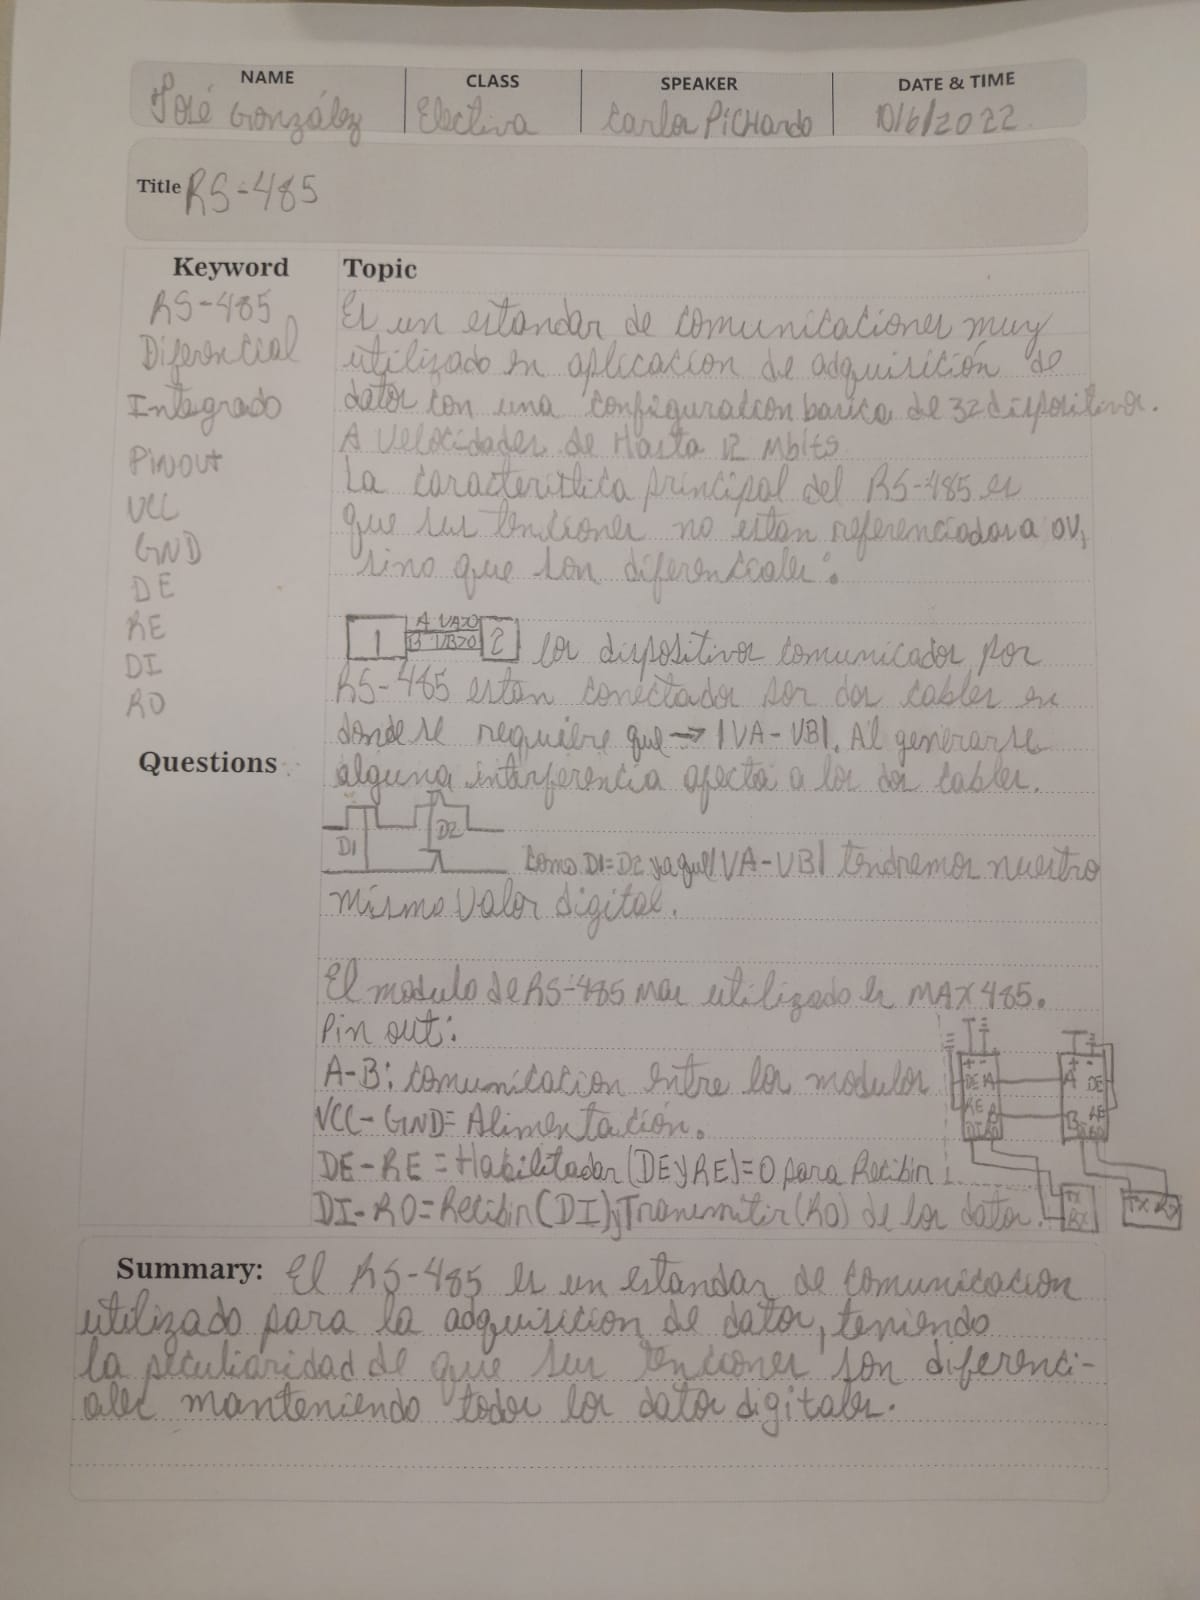 NAME
CLASS
SPEAKER
DATE & TIME
José González
Electiva
Carlos PicHardo
10/6/2022
Title RS-485
Keyword
RS-485
Diferencial
Integrado
Pinout
VCC
GND
DE
RE
DI
RO
Questions
Topic
Es un estandar de comunicaciones muy
utilizado en aplicacion de adquisición de
datos con una configuracion basica de 32 dispositivos.
A velocidades de Hasta 12 Mbits
La caracteristica principal del RS-485 es
que sus tenciones no estan referenciadas a 0V,
sino que son diferenciales:
1 A VA>0 2
B VB>0
los dispositivos comunicados por
RS-485 estan conectados por dos cables en
donde se requiere que → |VA-VB|. Al generarse
alguna interferencia afecta a los dos cables.
D1 D2
Como D1=D2 ya que |VA-VB| tendremos nuestro
mismo valor digital.
El modulo de RS-485 mas utilizado es MAX485.
Pin out:
A-B: comunicacion entre los modulos
VCC-GND= Alimentación.
DE-RE = Habilitador (DE y RE)=0 para Recibir
DI-RO=Recibir (DI) y Transmitir (RO) de los datos.
+ -
DE A
RE B
DI RO
+ -
A DE
B RE
DI RO
TX
RX
TX RX
Summary: El RS-485 es un estandar de comunicacion
utilizado para la adquisicion de datos, teniendo
la peculiaridad de que sus tenciones son diferenci-
ales manteniendo todos los datos digitales.